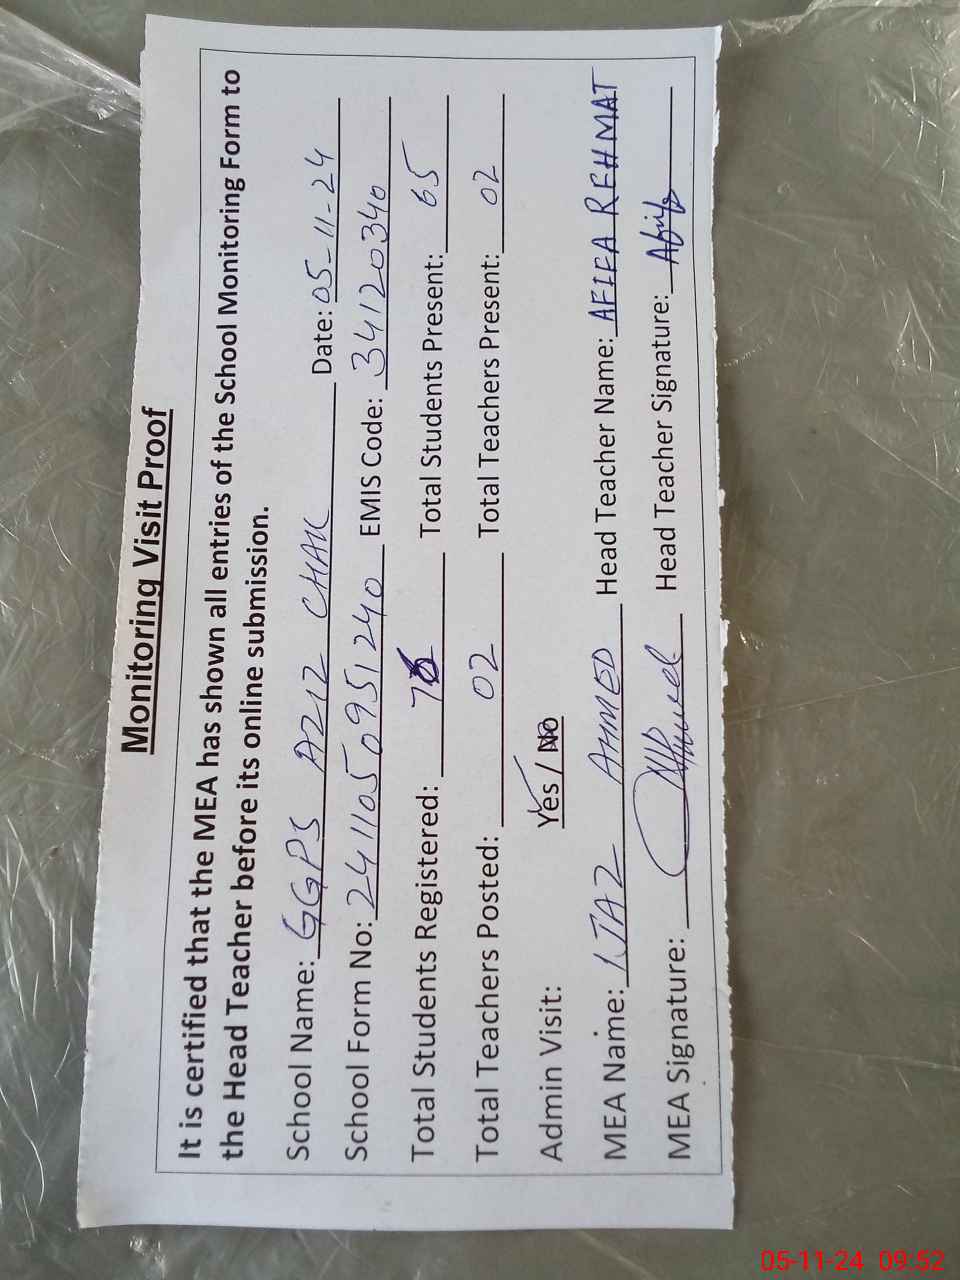 Monitoring Visit Proof
It is certified that the MEA has shown all entries of the School Monitoring Form to
the Head Teacher before its online submission.
School Name: GGPS AZIZ CHAK Date: 05-11-24
School Form No: 2411050951240 EMIS Code: 34120340
Total Students Registered: 76 Total Students Present: 65
Total Teachers Posted: 02 Total Teachers Present: 02
Admin Visit: Yes / No
MEA Name: IJAZ AHMED Head Teacher Name: AFIFA REHMAT
MEA Signature: Head Teacher Signature: Afifa
05-11-24 09:52